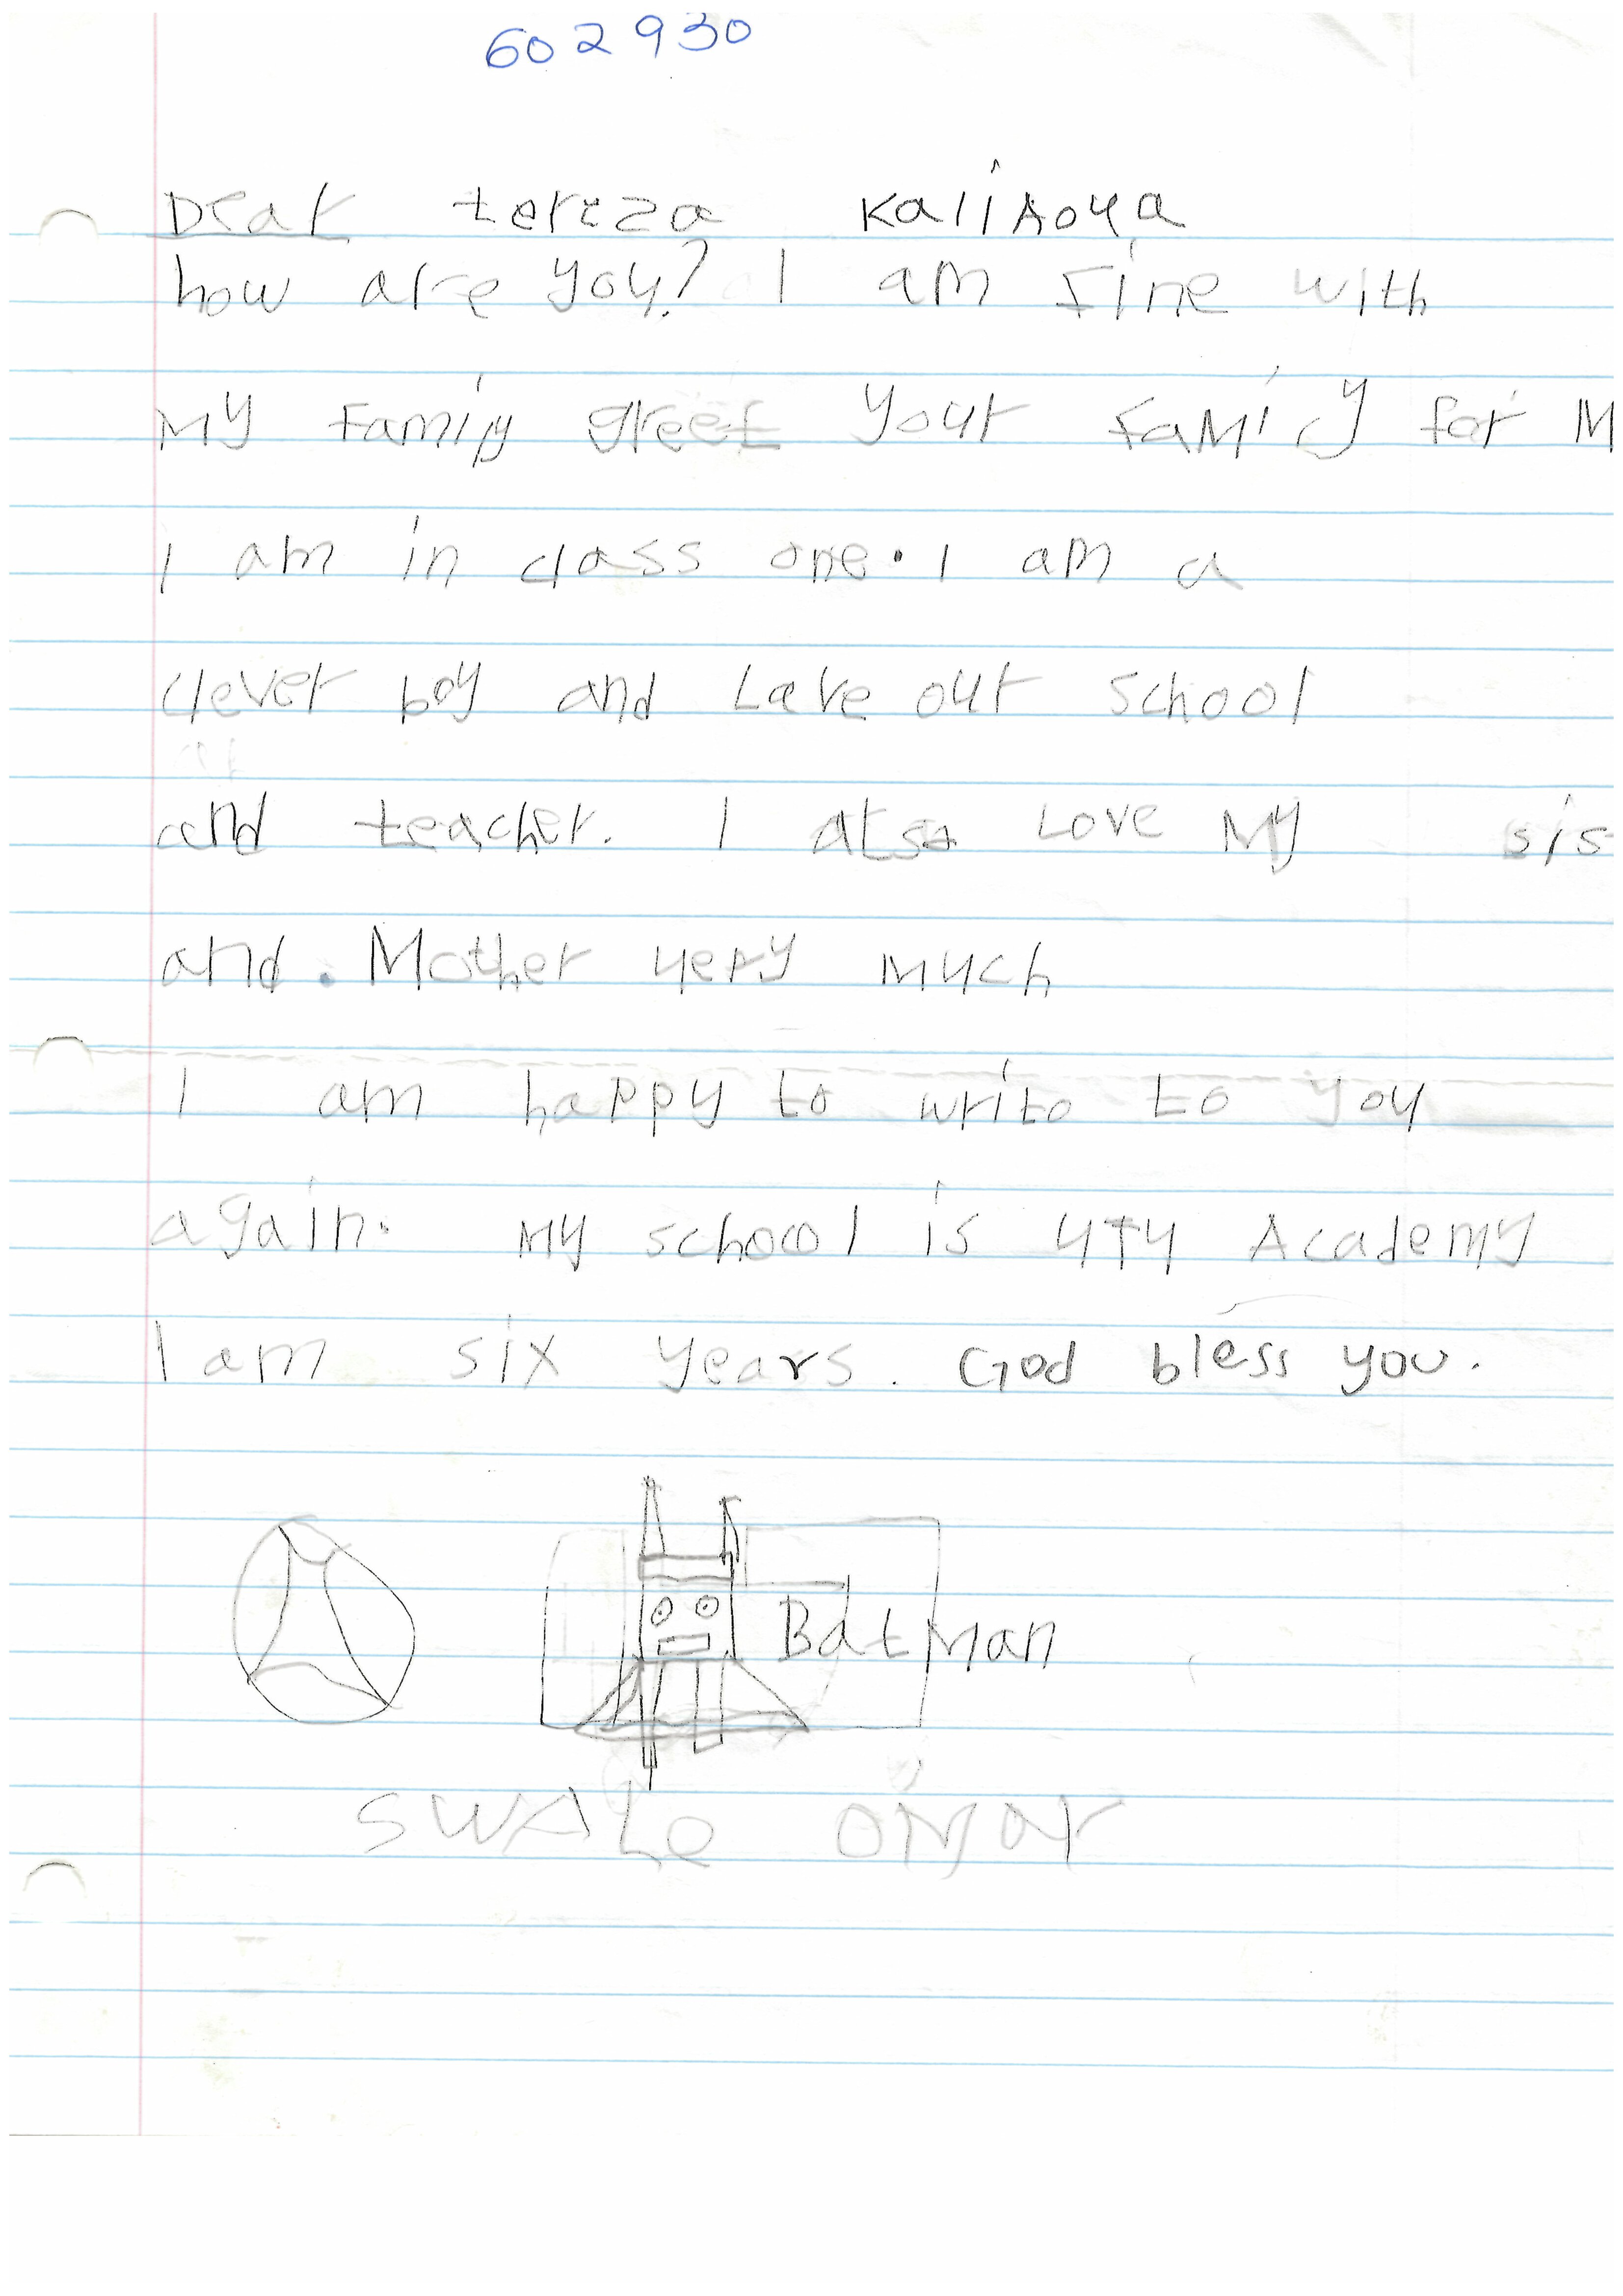 602930
Dear tereza Kalinova
how are you? I am fine with
My Family greet your family for M
I am in class one. I am a
clever boy and Love our school
and teacher. I also Love My sis
and. Mother very much
I am happy to write to you
again. My school is UTU Academy
I am six years. God bless you.
BatMan
SWALe OMar